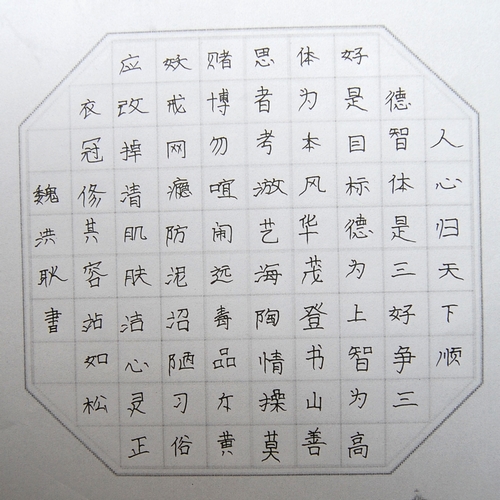 人心归天下顺
德智体是三好争三
好是目标德为上智为高
体为本风华茂登书山善
思者考游艺海陶情操莫
赌博勿喧闹远毒品黄
戒网瘾防泥沼陋习俗
应改掉清肌肤洁心灵正
衣冠修其容站如松
魏洪耿書